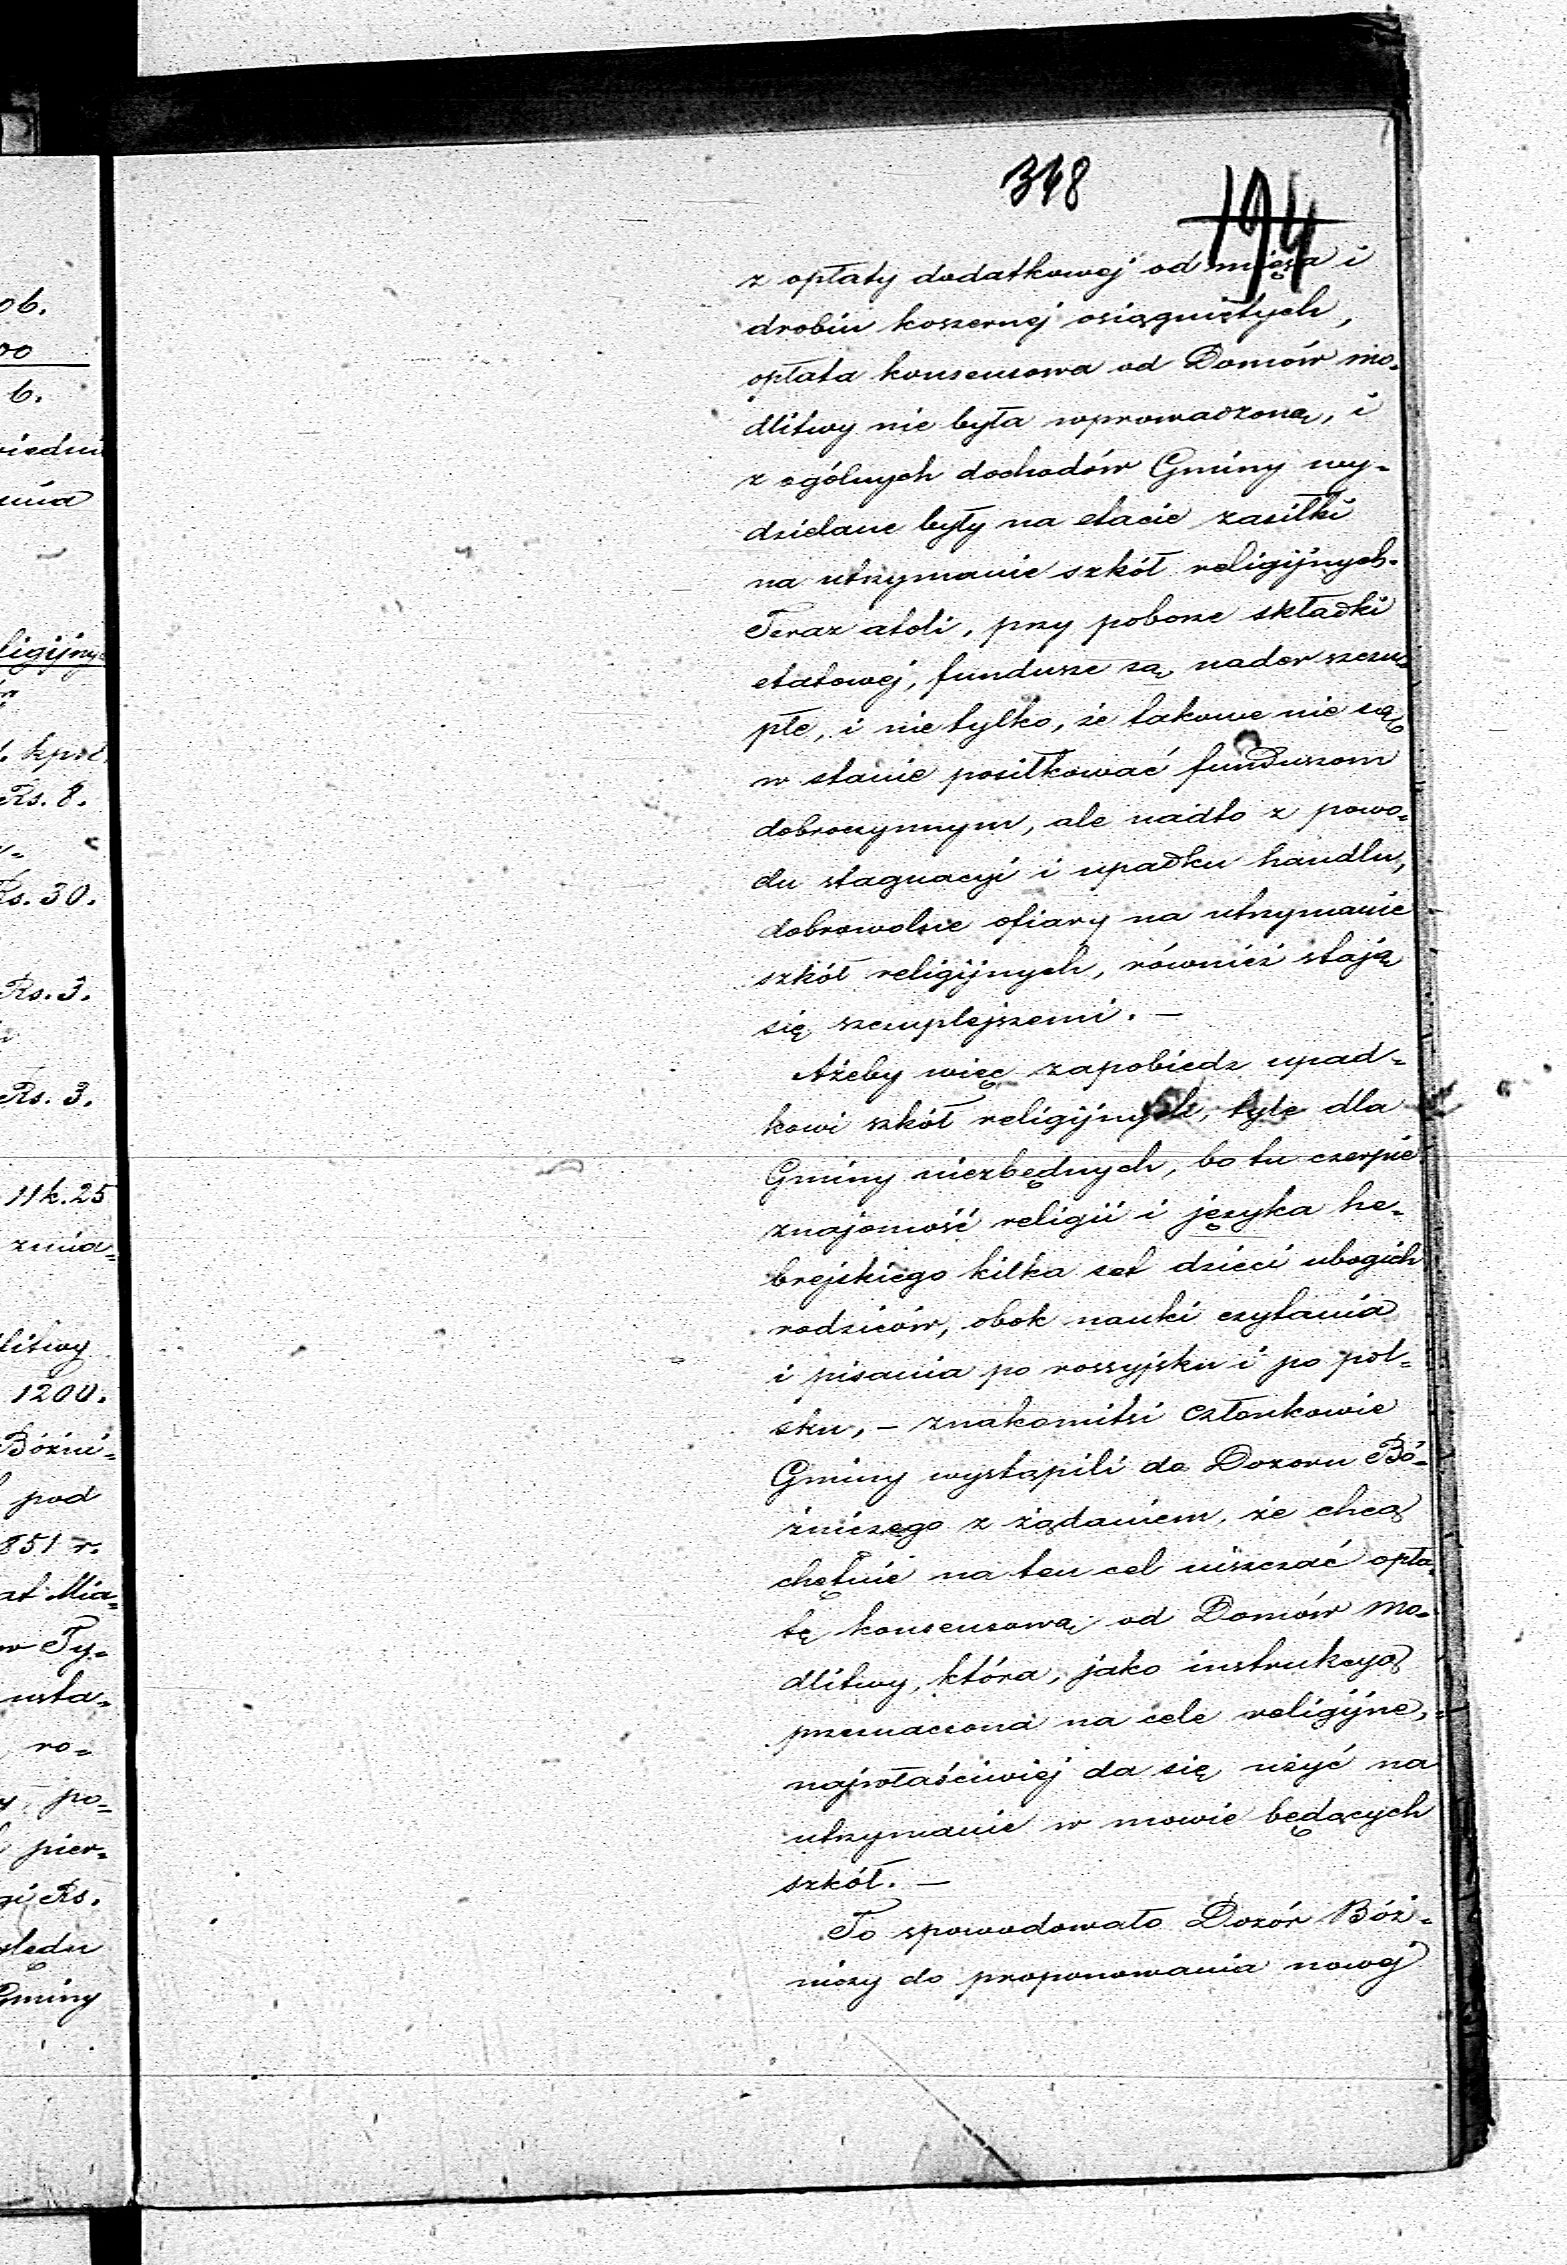 348
194
z opłaty dodatkowej od mięsa i
drobiu koszernej osiągniętych,
opłata konsensowa od Domów mo-
dlitwy nie była wprowadzoną, i
z ogólnych dochodów Gminy wy-
dzielane były na etacie zasiłki
na utrzymanie szkół religijnych.
Teraz atoli, przy poborze składki
etatowej, fundusze są nader szczu-
płe, i nie tylko, że takowe nie są
w stanie posiłkować funduszom
dobroczynnym, ale nadto z powo-
du stagnacyi i upadku handlu,
dobrowolne ofiary na utrzymanie
szkół religijnych, również stają
się szczuplejszemi. —
Ażeby więc zapobiedz upad-
kowi szkół religijnych, tyle dla
Gminy niezbędnych, bo tu czerpie
znajomość religii i języka he-
brejskiego kilka set dzieci ubogich
rodziców, obok nauki czytania
i pisania po rossyjsku i po pol-
sku, — znakomitsi Członkowie
Gminy wystąpili do Dozoru Bó-
żniczego z żądaniem, że chcą
chętnie na ten cel uiszczać opła-
tę konsensową od Domów mo-
dlitwy, która, jako instrukcyą
przeznaczona na cele religijne,
najwłaściwiej da się użyć na
utrzymanie w mowie będących
szkół. —
To spowodowało Dozór Bóż-
niczy do proponowania nowej
06.
00
6.
ligijny-
kpół.
Rs. 8.
Rs. 30.
Rs. 3.
Rs. 3.
11 k. 25
zmia-
dlitwy
1200.
Bóżni-
pod
851 r.
at Mia-
w Ty-
usta-
ro-
po-
pier-
Rs.
ględu
Gminy